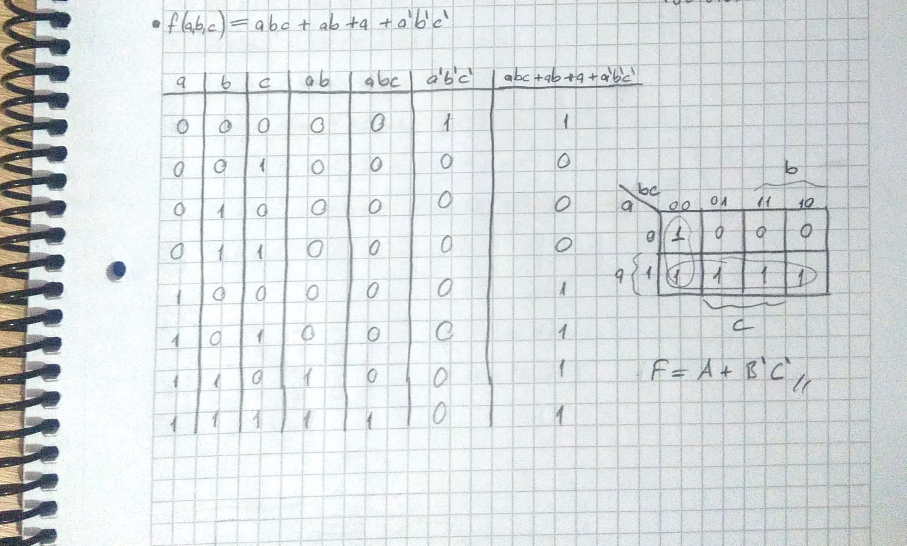 • f(a,b,c) = abc + ab + a + a'b'c'
a b c ab abc a'b'c' abc+ab+a+a'b'c'
0 0 0 0 0 1 1
0 0 1 0 0 0 0
0 1 0 0 0 0 0
0 1 1 0 0 0 0
1 0 0 0 0 0 1
1 0 1 0 0 0 1
1 1 0 1 0 0 1
1 1 1 1 1 0 1
b
bc
a 00 01 11 10
0 1 0 0 0
a { 1 1 1 1 1
c
F = A + B'C' //